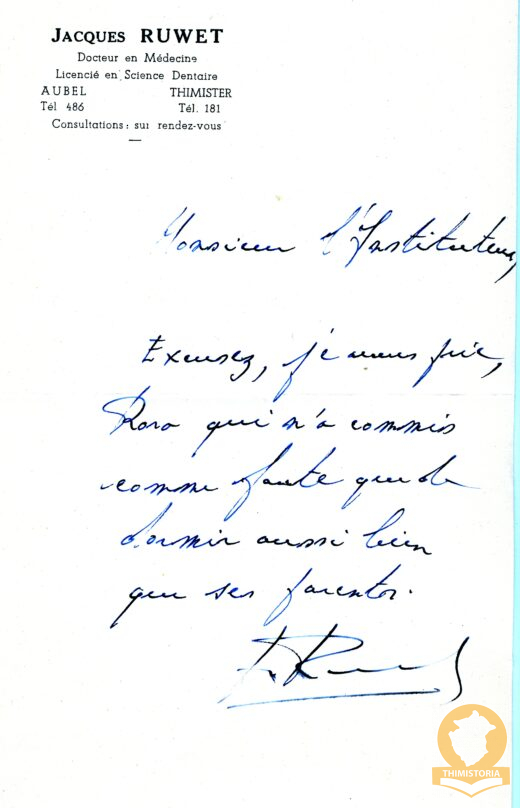 JACQUES RUWET
Docteur en Médecine
Licencié en Science Dentaire
AUBEL THIMISTER
Tél 486 Tél. 181
Consultations: sur rendez-vous
Monsieur l'Instituteur,
Excusez, je vous prie,
Roro qui n'a commis
comme faute que de
dormir aussi bien
que ses parents.
THIMISTORIA